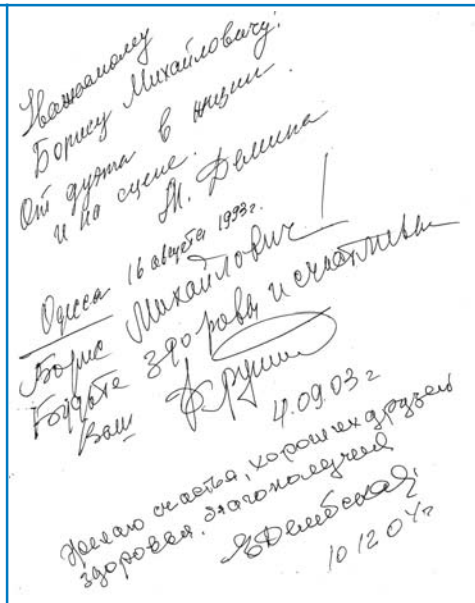 Уважаемому
Борису Михайловичу!
От дуэта в жизни
и на сцене.
М. Демина
Одесса 16 августа 1993г.
Борис Михайлович!
Будьте здоровы и счастливы
Ваш
4.09.03 г
Желаю счастья, хороших друзей
здоровья. благополучия
10 12 04г